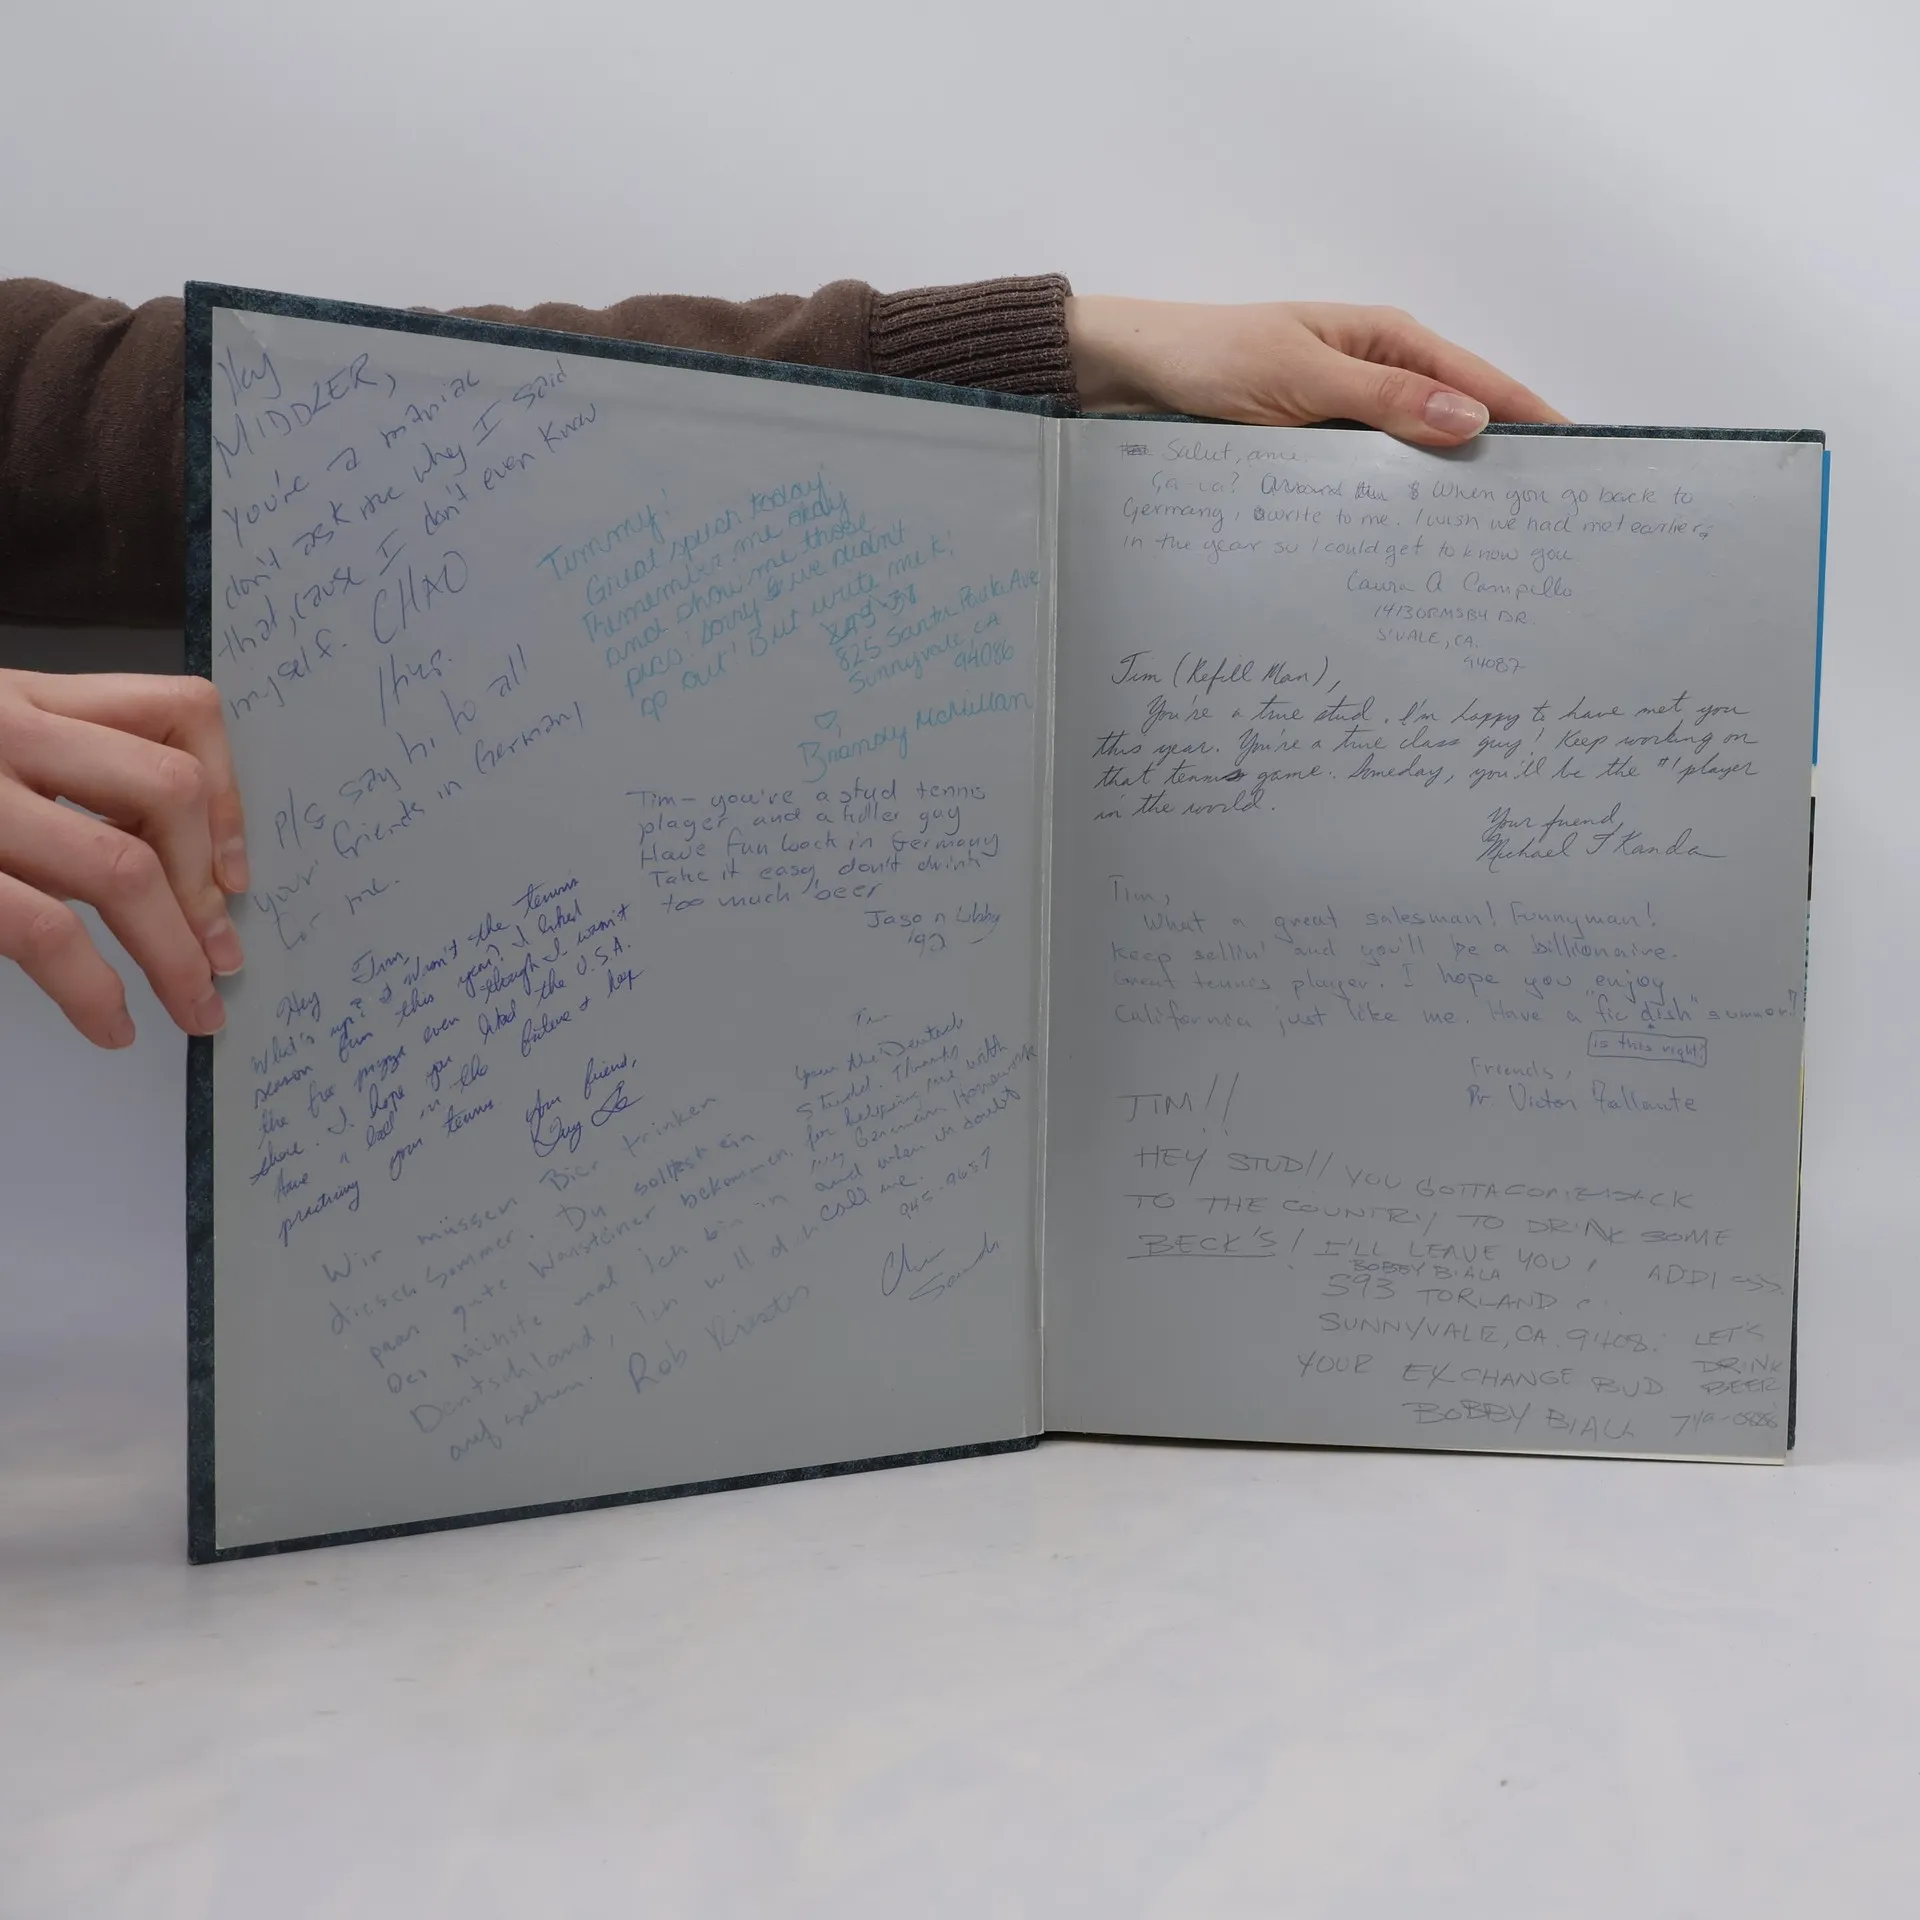 Hey
MIDDLER,
You're a maniac
don't ask me why I said
that, cause I don't even know
myself. CHAO
P/S say hi to all
your friends in Germany
for me.
Timmy!
Great speech today!
Remember me okay
and show me those
pics! Sorry we didnt
go out! But write me k!
825 Santa Paula Ave
Sunnyvale, CA
94086
♡,
Brandy McMillan
Tim – you're a stud tennis
player and a killer guy
Have fun back in Germany
Take it easy don't drink
too much beer
Jason Libby
'92
Hey Tim,
What's up? Wasn't the tennis
season fun this year? I liked
the free pizza even though I wasn't
there. I hope you liked the U.S.A.
Have a ball in the future & keep
practicing your tennis.
Your friend,
Tim
your the Deutsch
Studd. Thanks
for helping me with
my German Homework
and when in doubt
call me.
945-9657
Wir müssen Bier trinken
diesen Sommer. Du solltest ein
paar gute Warsteiner bekommen.
Der nächste mal ich bin in
Deutschland, ich will dich
auf sehen.
Salut, ami.
Ça-va? When you go back to
Germany, write to me. I wish we had met earlier
in the year so I could get to know you
Laura A Campillo
1413 ORMSBY DR.
S'VALE, CA.
94087
Tim (Refill Man),
You're a true stud. I'm happy to have met you
this year. You're a true class guy! Keep working on
that tennis game. Someday, you'll be the #1 player
in the world.
Your friend,
Michael T Kanda
Tim,
What a great salesman! Funnyman!
Keep sellin' and you'll be a billionaire.
Great tennis player. I hope you enjoy
California just like me. Have a "fic dish" summer!!
is this right?
Friends,
Victor
JIM!!
HEY STUD!! YOU GOTTA COME BACK
TO THE COUNTRY TO DRINK SOME
BECK'S! I'LL LEAVE YOU
BOBBY BIALA
593 TORLAND
SUNNYVALE, CA.
YOUR EXCHANGE BUD
BOBBY BIALA
LET'S
DRINK
BEER